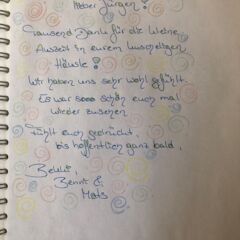 lieber Jürgen!
Tausend Dank für die kleine
Auszeit in eurem kuscheligen
Häusle!
Wir haben uns sehr wohl gefühlt.
Es war sooo schön euch mal
wieder zusehen
Fühlt euch gedrückt,
bis hoffentlich ganz bald,
Bennt &
Mats